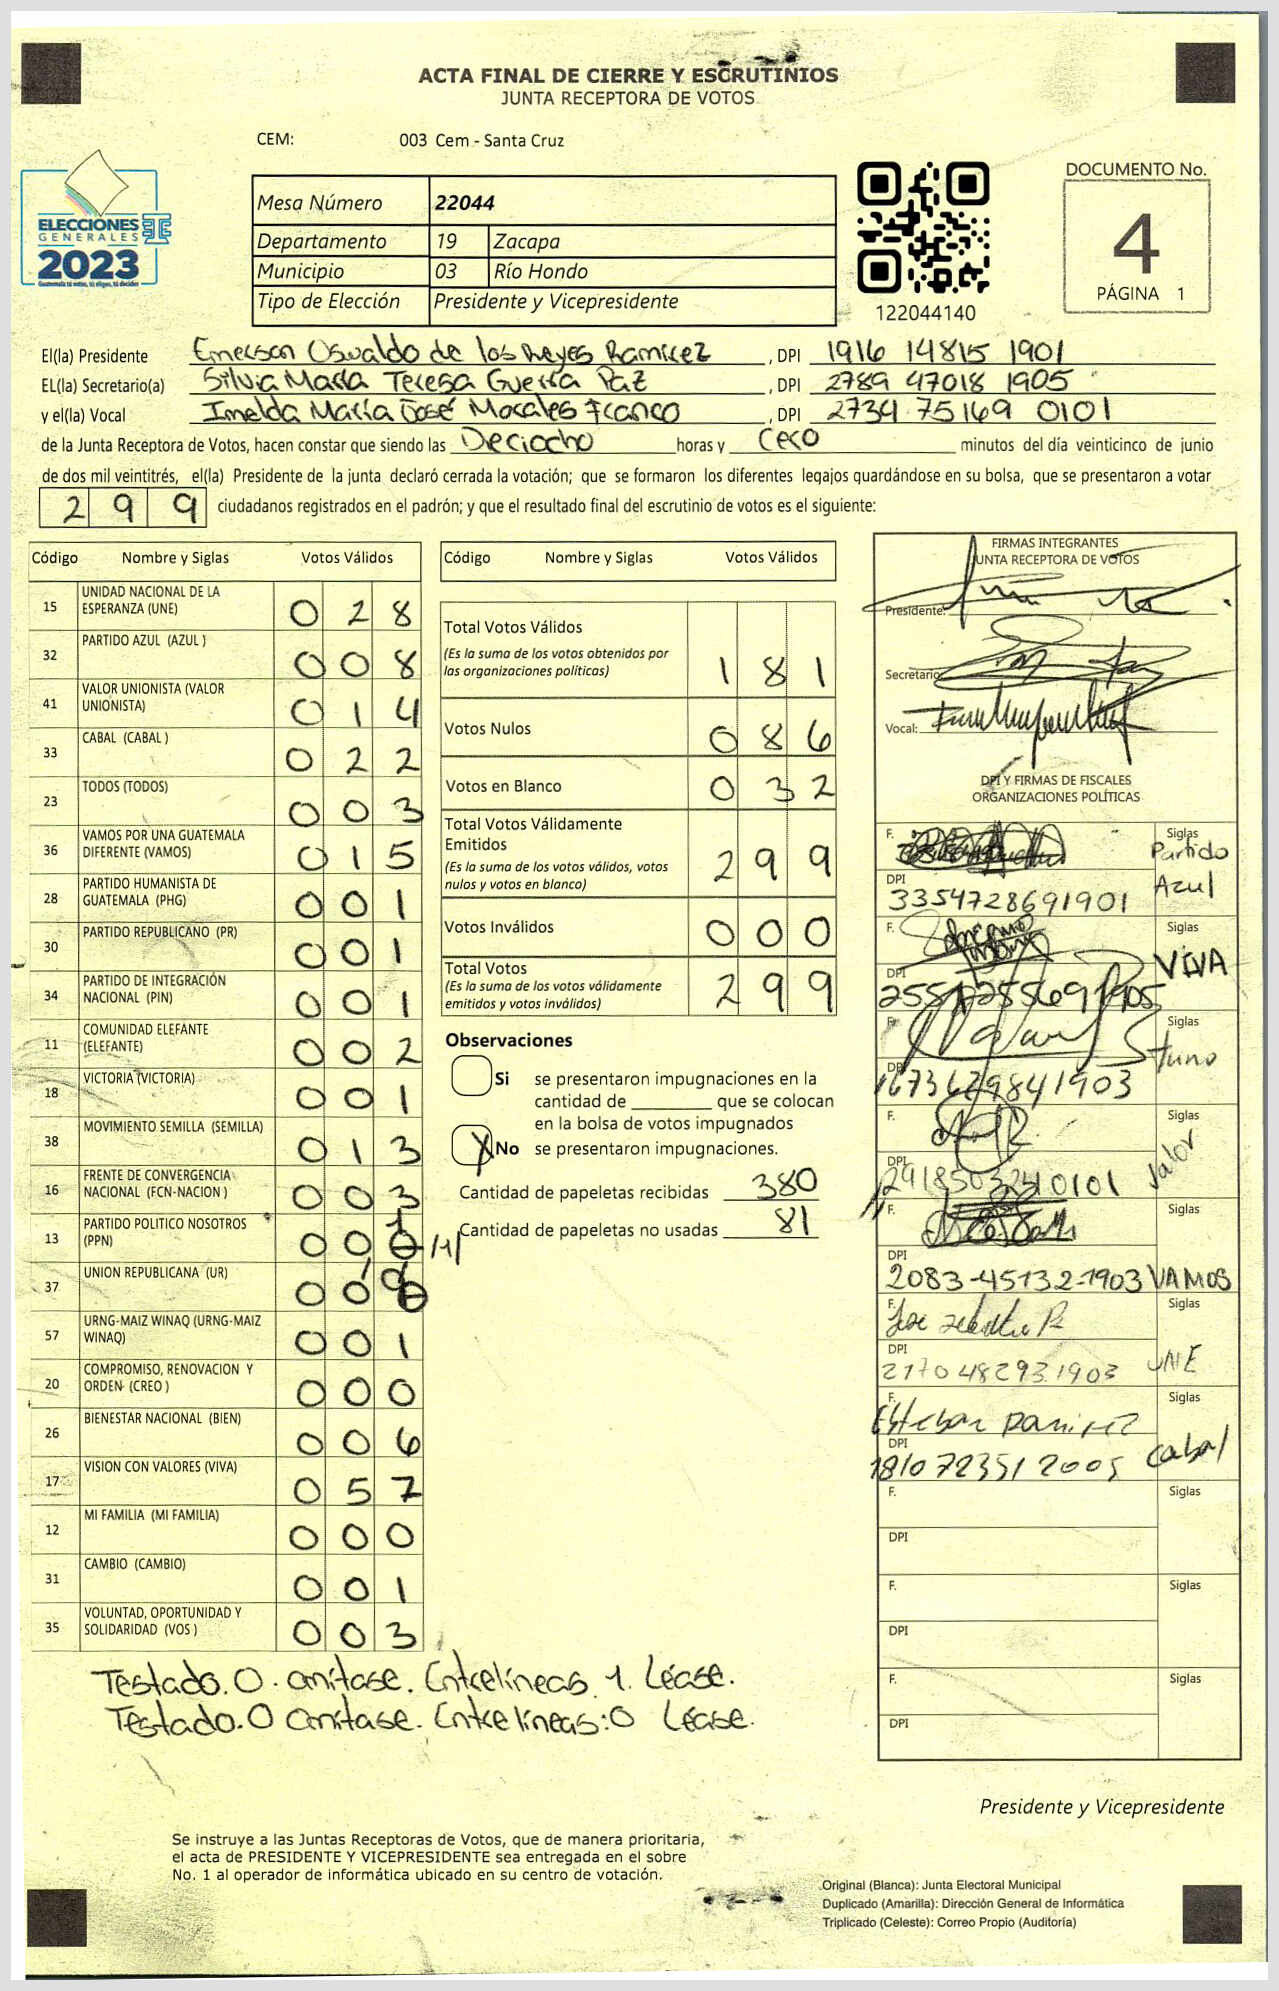 ACTA FINAL DE CIERRE Y ESCRUTINIOS
JUNTA RECEPTORA DE VOTOS
CEM: 003 Cem - Santa Cruz
ELECCIONES
GENERALES
2023
Guatemala tú votas, tú eliges, tú decides
Mesa Número 22044
Departamento 19 Zacapa
Municipio 03 Río Hondo
Tipo de Elección Presidente y Vicepresidente
122044140
DOCUMENTO No.
4
PÁGINA 1
El(la) Presidente Emerson Oswaldo de los Reyes Ramirez, DPI 1916 14815 1901
EL(la) Secretario(a) Silvia María Teresa Guerra Paz, DPI 2789 47018 1905
y el(la) Vocal Imelda María José Morales Franco, DPI 2734 75169 0101
de la Junta Receptora de Votos, hacen constar que siendo las Deciocho horas y Cero minutos del día veinticinco de junio
de dos mil veintitrés, el(la) Presidente de la junta declaró cerrada la votación; que se formaron los diferentes legajos quardándose en su bolsa, que se presentaron a votar
299 ciudadanos registrados en el padrón; y que el resultado final del escrutinio de votos es el siguiente:
Código Nombre y Siglas Votos Válidos
15 UNIDAD NACIONAL DE LA ESPERANZA (UNE) 0 2 8
32 PARTIDO AZUL (AZUL ) 0 0 8
41 VALOR UNIONISTA (VALOR UNIONISTA) 0 1 4
33 CABAL (CABAL ) 0 2 2
23 TODOS (TODOS) 0 0 3
36 VAMOS POR UNA GUATEMALA DIFERENTE (VAMOS) 0 1 5
28 PARTIDO HUMANISTA DE GUATEMALA (PHG) 0 0 1
30 PARTIDO REPUBLICANO (PR) 0 0 1
34 PARTIDO DE INTEGRACIÓN NACIONAL (PIN) 0 0 1
11 COMUNIDAD ELEFANTE (ELEFANTE) 0 0 2
18 VICTORIA (VICTORIA) 0 0 1
38 MOVIMIENTO SEMILLA (SEMILLA) 0 1 3
16 FRENTE DE CONVERGENCIA NACIONAL (FCN-NACION ) 0 0 3
13 PARTIDO POLITICO NOSOTROS (PPN) 0 0 1
37 UNION REPUBLICANA (UR) 0 0 0
57 URNG-MAIZ WINAQ (URNG-MAIZ WINAQ) 0 0 1
20 COMPROMISO, RENOVACION Y ORDEN (CREO ) 0 0 0
26 BIENESTAR NACIONAL (BIEN) 0 0 6
17 VISION CON VALORES (VIVA) 0 5 7
12 MI FAMILIA (MI FAMILIA) 0 0 0
31 CAMBIO (CAMBIO) 0 0 1
35 VOLUNTAD, OPORTUNIDAD Y SOLIDARIDAD (VOS ) 0 0 3
Testado.0. omítase. Entrelíneas 1. Léase.
Testado.0 omítase. Entrelíneas:0 Léase.
Código Nombre y Siglas Votos Válidos
Total Votos Válidos 1 8 1
(Es la suma de los votos obtenidos por
las organizaciones políticas)
Votos Nulos 0 8 6
Votos en Blanco 0 3 2
Total Votos Válidamente
Emitidos 2 9 9
(Es la suma de los votos válidos, votos
nulos y votos en blanco)
Votos Inválidos 0 0 0
Total Votos 2 9 9
(Es la suma de los votos válidamente
emitidos y votos inválidos)
Observaciones
Si se presentaron impugnaciones en la
cantidad de ________ que se colocan
en la bolsa de votos impugnados
X No se presentaron impugnaciones.
Cantidad de papeletas recibidas 380
Cantidad de papeletas no usadas 81
FIRMAS INTEGRANTES
JUNTA RECEPTORA DE VOTOS
Presidente:
Secretario
Vocal:
DPI Y FIRMAS DE FISCALES
ORGANIZACIONES POLÍTICAS
F. Siglas Partido Azul
DPI 3354728691901
F. Siglas VIVA
DPI
F. Siglas
DPI
F. Siglas Valor
DPI
F. Siglas
DPI 2083-45132-1903 VAMOS
F. Siglas
DPI 2170482931903 UNE
F. Esteban Ramirez Siglas
DPI 1810723512005 Cabal
F. Siglas
DPI
F. Siglas
DPI
F. Siglas
DPI
Presidente y Vicepresidente
Se instruye a las Juntas Receptoras de Votos, que de manera prioritaria,
el acta de PRESIDENTE Y VICEPRESIDENTE sea entregada en el sobre
No. 1 al operador de informática ubicado en su centro de votación.
Original (Blanca): Junta Electoral Municipal
Duplicado (Amarilla): Dirección General de Informática
Triplicado (Celeste): Correo Propio (Auditoría)